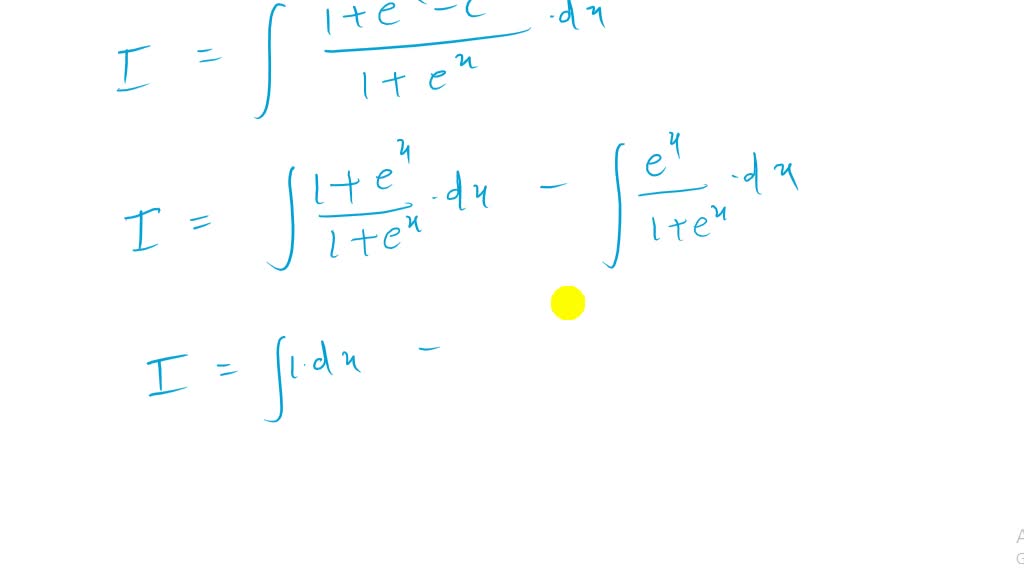 I = ∫ (1 + e^x - e^x)/(1 + e^x) · dx
I = ∫ (1 + e^x)/(1 + e^x) · dx - ∫ e^x/(1 + e^x) · dx
I = ∫ 1 · dx -